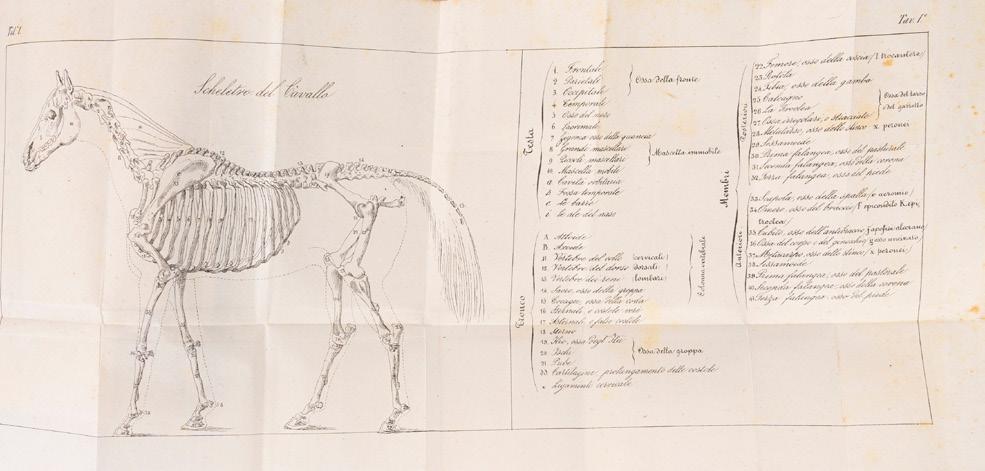 Tav. 1ª
Scheletro del Cavallo
Testa
1. Frontale
2 Parietale
3 Occipitale
4 Temporale
Ossa della fronte
5 Osso del naso
6 Lacrimale
7
8 Grande mascellare
9 Piccolo mascellare
Mascella immobile
10 Mascella mobile
a Cavità orbitaria
b Fossa temporale
c le barre
d le ale del naso
Tronco
A. Atloide
B. Axoide
11 Vertebre del collo (cervicali)
12 Vertebre del dorso (dorsali)
13 Vertebre dei reni (lombari)
14 Sacro, osso della groppa
15 Coccige, ossa della coda
Colonna vertebrale
16 Sternali o costole vere
17 Asternali o false costole
18 Sterno
19 Ilio, ossa degl' Ilei
20 Ischi
21 Pube
Ossa della groppa
Cartilagine, prolungamento delle costole
Ligamento cervicale
Membri
Posteriori
22 Femore, osso della coscia (l trocantere)
23 Rotola
24 Tibia, osso della gamba
25 Calcagno
26 La Troclea
27 Ossa irregolari, o stiacciate
Ossa del tarso o del garretto
28 Metatarso, osso dello stinco x peronei
29 Sessamoide
30 Prima falangea, osso del pasturale
31 Seconda falangea, osso della corona
32 Terza falangea, osso del piede
Anteriori
33 Scapola, osso della spalla (e acromio)
34 Omero, osso del braccio
troclea)
35 Cubito, osso dell'antibraccio
36 Ossa del carpo o del ginocchio
37 Metacarpo, osso dello stinco, x peronei)
38 Sessamoide
39 Prima falangea, osso del pasturale
40 Seconda falangea, osso della corona
41 Terza falangea, osso del piede